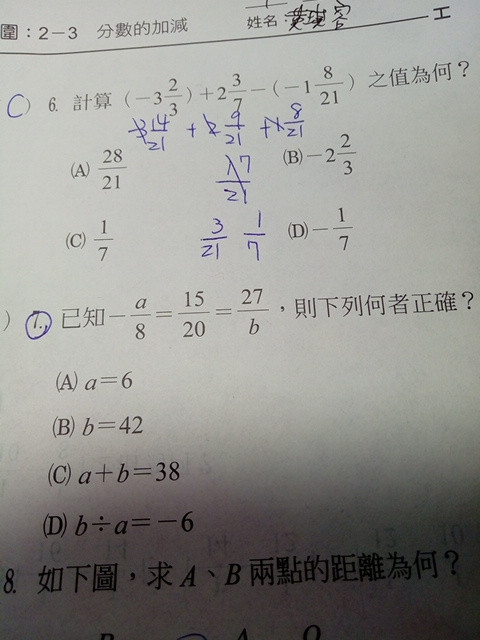 圍：2-3 分數的加減 姓名：
C) 6. 計算 (-3 2/3)+2 3/7-(-1 8/21) 之值為何？
14/21 + 9/21 + 8/21
(A) 28/21 (B) -2 2/3
17/21
(C) 1/7 3/21 1/7 (D) -1/7
) 7. 已知-a/8=15/20=27/b，則下列何者正確？
(A) a=6
(B) b=42
(C) a+b=38
(D) b÷a=-6
8. 如下圖，求A、B兩點的距離為何？